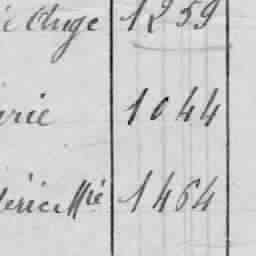 Ange 1259
rie 1044
érie Mié 1464